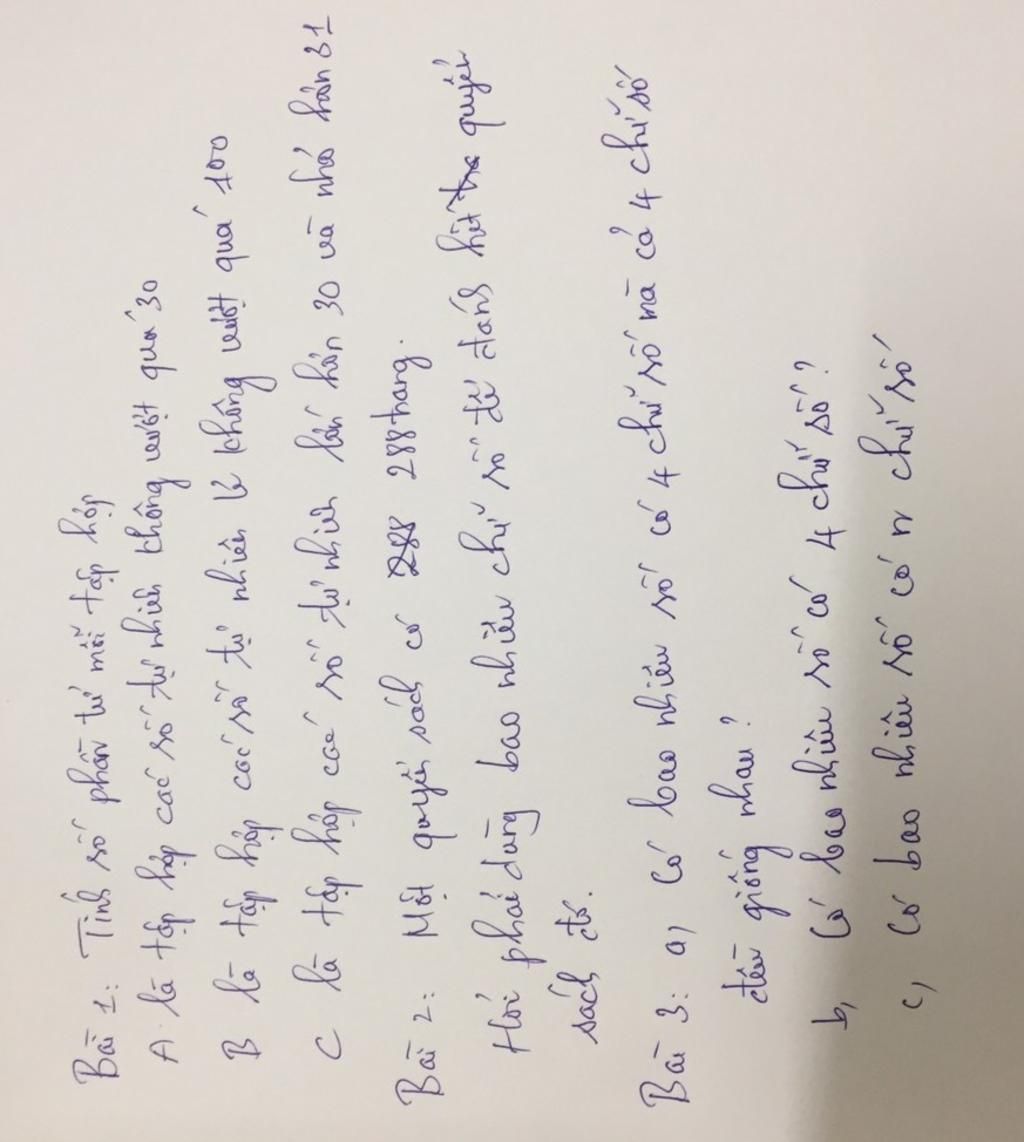 Bài 1: Tính số phần tử mỗi tập hợp
A là tập hợp các số tự nhiên không vượt quá 30
B là tập hợp các số tự nhiên lẻ không vượt quá 100
C là tập hợp các số tự nhiên lớn hơn 30 và nhỏ hơn 31
Bài 2: Một quyển sách có 288 288 trang.
Hỏi phải dùng bao nhiêu chữ số để đánh hết quyển
sách đó.
Bài 3: a, Có bao nhiêu số có 4 chữ số mà cả 4 chữ số
đều giống nhau?
b, Có bao nhiêu số có 4 chữ số?
c, Có bao nhiêu số có n chữ số